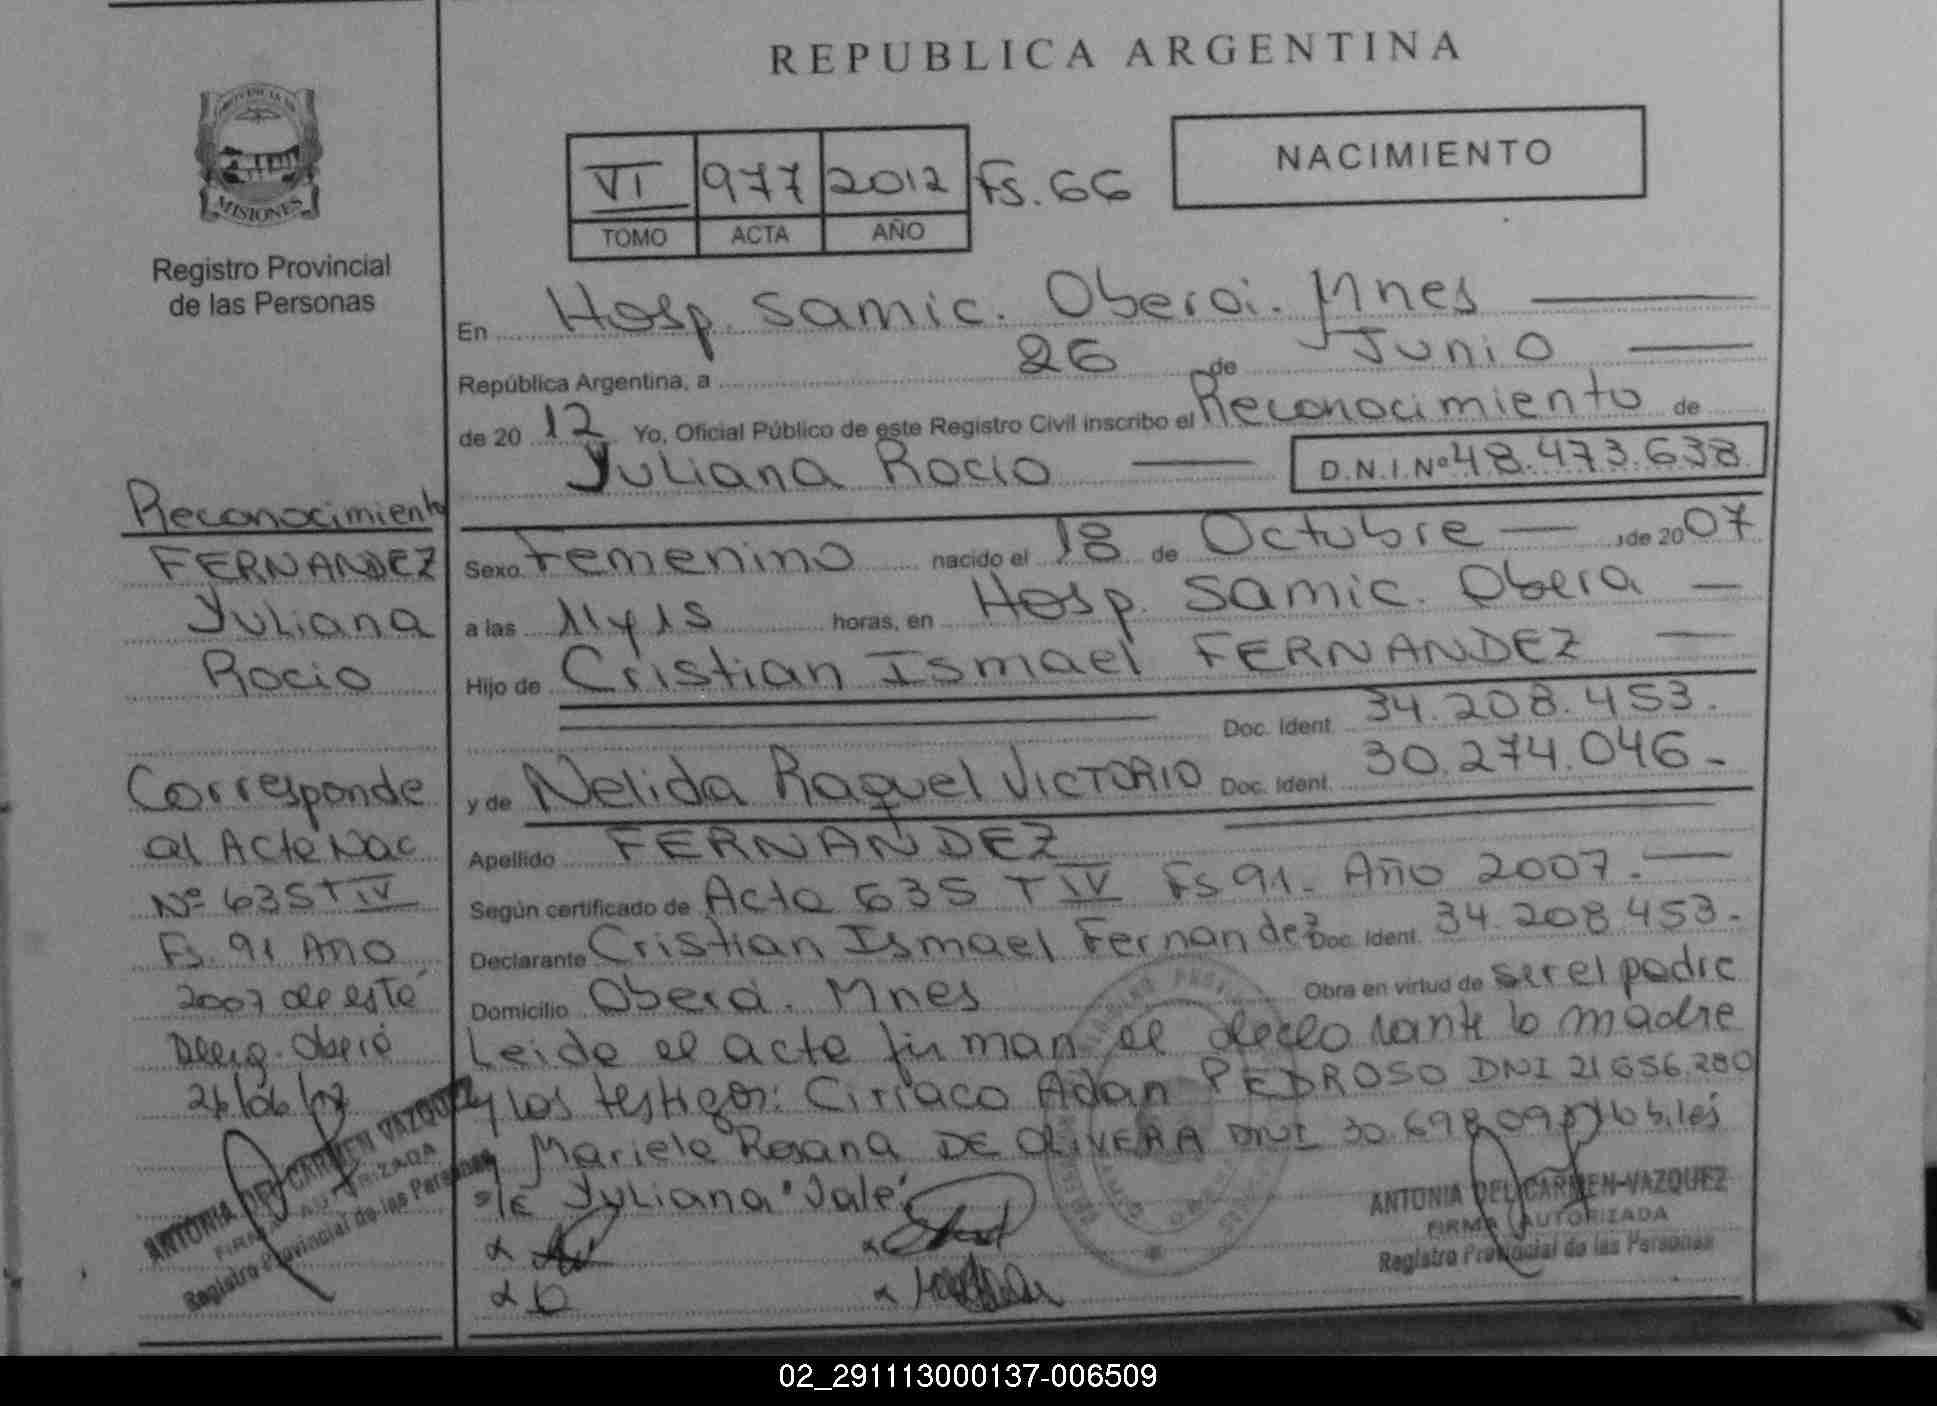 REPUBLICA ARGENTINA
PROVINCIA DE
MISIONES
Registro Provincial
de las Personas
VI 977 2012 Fs. 66
TOMO ACTA AÑO
NACIMIENTO
En Hosp. Samic. Obera. Mnes
República Argentina, a 26 de Junio
de 20 12 Yo, Oficial Público de este Registro Civil inscribo el Reconocimiento de
Yuliana Rocio D.N.I.Nº 48.473.638
Sexo Femenino nacido el 18 de Octubre de 2007
a las 11 y 15 horas, en Hosp. Samic. Obera
Hijo de Cristian Ismael FERNANDEZ
Doc. Ident. 34.208.453.
y de Nelida Raquel VICTORIO Doc. Ident. 30.274.046-
Apellido FERNANDEZ
Según certificado de Acta 635 T IV Fs 91. Año 2007.
Declarante Cristian Ismael Fernandez Doc. Ident. 34.208.453.
Domicilio Obera. Mnes Obra en virtud de ser el padre
Leida el acta firman el declarante la madre
y los testigos: Ciriaco Adan PEDROSO DNI 21656.280
y Mariela Rosana DE OLIVERA DNI 30.698.095
s/e Yuliana "Vale"
ANTONIA DEL CARMEN VAZQUEZ
FIRMA AUTORIZADA
Registro Provincial de las Personas
Reconocimiento
FERNANDEZ
Yuliana
Rocio
Corresponde
al Acta Nac
Nº 635 T IV
Fs. 91 Año
2007 de esta
Deleg. Oberá
26/06/12
ANTONIA DEL CARMEN VAZQUEZ
FIRMA AUTORIZADA
Registro Provincial de las Personas
02_291113000137-006509